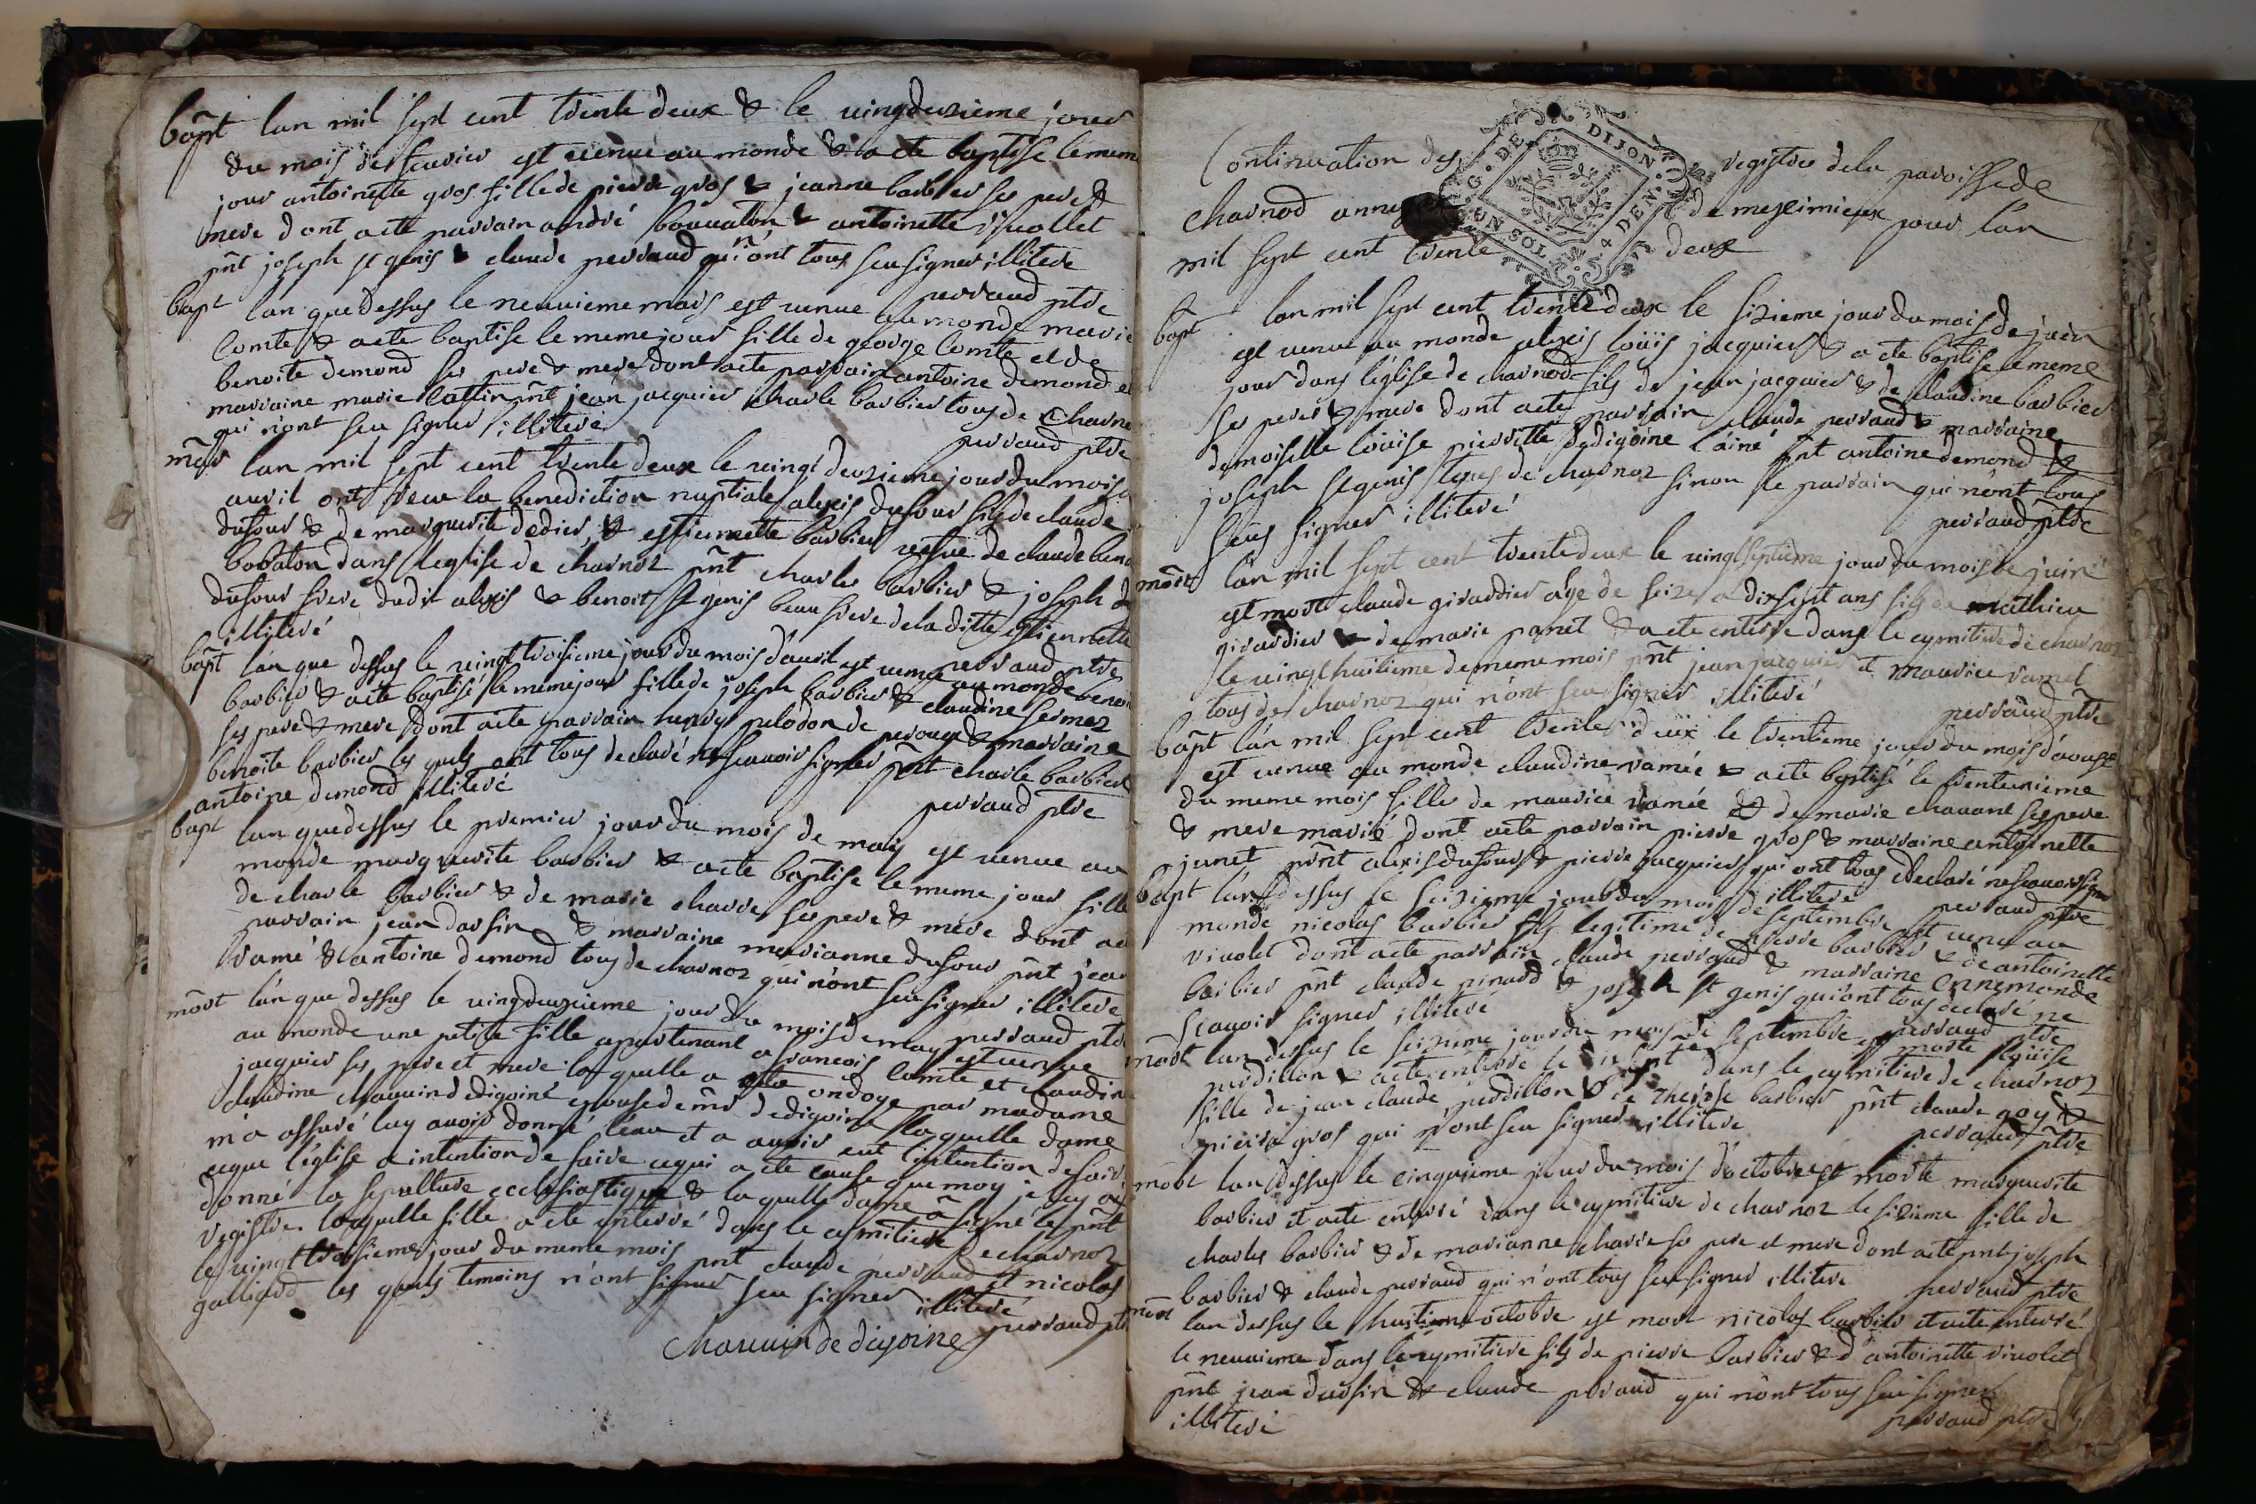 bapt lan mil sept cent trente deux & le vingdeuzieme jour
du mois de feuvier est venue au monde & a ete baptise le meme
jour antoinette gros fille de pierre gros & jeanne barbier ses pere &
mere dont acte parrain andré bouuaton & antoinette viuollet
pñt joseph st genis & claude perraud qui n'ont tous seu signer illiteré
perraud ptre
bapt lan que dessus le neuuieme mars est venue au monde marie
Comte & a ete baptise le meme jour fille de george Comte et de
benoite demond ses pere & mere dont acte parrain antoine demond et
marraine marie Cattin pñt jean jacquier charle barbier tous de charno
qui n'ont seu signer illiteré
perraud ptre
mar lan mil sept cent trente deux le vingt deuzieme jour du mois
auril ont receu la benediction nuptiale alexis dufour fils de claude
dufour & de marguerite dedier, & estiennette barbier vefue de claude
bobaton dans leglise de charnoz pñt charles barbier & joseph
dufour frere dudit alexis & benoit st genis beau frere de la ditte estiennette
illiteré
perraud ptre
bapt lan que dessus le vingt troisieme jour du mois d'auril est venue au monde
barbier & a ete baptisé le meme jour fille de joseph barbier & claudine fermez
ses pere & mere dont acte parrain henry pelodon de perouge & marraine
benoite barbier les quels ont tous declaré ne scauoir signer pñt charle barbier
antoine demond illiteré
perraud ptre
bapt lan que dessus le premier jour du mois de may est venue au
monde marguerite barbier & a ete baptise le meme jour fille
de charle barbier & de marie charre ses pere & mere dont
parrain jean darsin & marraine marianne dufour pñt jean
ramé & antoine demond tous de charnoz qui n'ont seu signer illiteré
perraud ptre
mort lan que dessus le vingdeuzieme jour du mois de may est venue
au monde une petite fille apartenant a francois Comte et claudine
jacquier ses pere et mere laquelle a ete ondoye par madame
claudine chauuin dedigoine epouse de mr dedigoine laquelle dame
m'a assuré luy auoir donné leau et a auoir eut l'intention de faire
ceque l'église a intention de faire cequi a ete cause que moy je luy ay
donné la sepulture ecclesiastique & laquelle dame a signé le pñt
registre. laquelle fille a ete enterré dans le cymitiere de charnoz
le vingt troisieme jour du meme mois pñt claude perraud et nicolas
galliard les quels temoins n'ont seu signer illiteré
perraud ptre
chauuin de digoine
Continuation des registres dela paroisse de
charnod de meximieux pour l'an
mil sept cent trente deux
G. DE DIJON
UN SOL 4 DEN.
bapt lan mil sept cent trente deux le sizieme jour du mois de juin
est venue au monde alexis loüis jacquier & a ete baptise le meme
jour dans l'église de charnod fils de jean jacquier & de claudine barbier
ses peres & mere dont acte parrain claude perraud & marraine
demoiselle loüise pierrette dedigoine l'ainé pñt antoine demond &
joseph st genis tous de charnoz sinon le parrain qui n'ont tous
seus signer illiteré
perraud ptre
mort lan mil sept cent trente deux le vingt septieme jour du mois de juin
est mort claude girardier age de seize a dix sept ans fils de mathieu
girardier & de marie panet & a ete enterre dans le cymitiere de charnoz
le vingt huitieme de meme mois pñt jean jacquier et maurice ramel
tous de charnoz qui n'ont seu signer illiteré
perraud ptre
bapt lan mil sept cent trente deux le trentieme jour du mois d'aoust
est venue au monde claudine ramée & a ete baptisé le trenteunieme
du meme mois fille de maurice ramée & de marie chauant ses pere
& mere marié dont acte parrain pierre gros & marraine antoinette
junet pñt alexis dufour & pierre jacquier qui ont tous declaré ne scauoir signer
illiteré
perraud ptre
bapt l'an dessus le seizieme jour du mois de septembre est venu au
monde nicolas barbier fils legitime de pierre barbier & de antoinette
viuolet dont acte parrain claude perraud & marraine Ennemonde
barbier pñt claude pinard & joseph st genis qui ont tous declaré ne
scauoir signer illiteré
perraud ptre
mort lan dessus le seizieme jour du mois de septembre est morte loüise
perdillon & a ete enterre le dans le cymitiere de charnoz
fille de jean claude perdillon & de therese barbier pñt claude goy &
pierre gros qui n'ont seu signer illiteré
perraud ptre
mort lan dessus le cinquieme jour du mois d'octobre est morte marguerite
barbier et a ete enterré dans le cymitiere de charnoz le sizieme fille de
charles barbier & de marianne charre ses pere et mere dont acte pñt joseph
barbier & claude perraud qui n'ont tous seu signer illiteré
perraud ptre
mort lan dessus le huitieme octobre est mort nicolas barbier et a ete enterré
le neuuieme dans le cymitiere fils de pierre barbier & d'antoinette viuolet
pñt jean darsin & claude peraud qui n'ont tous seu signer
illiteré
perraud ptre